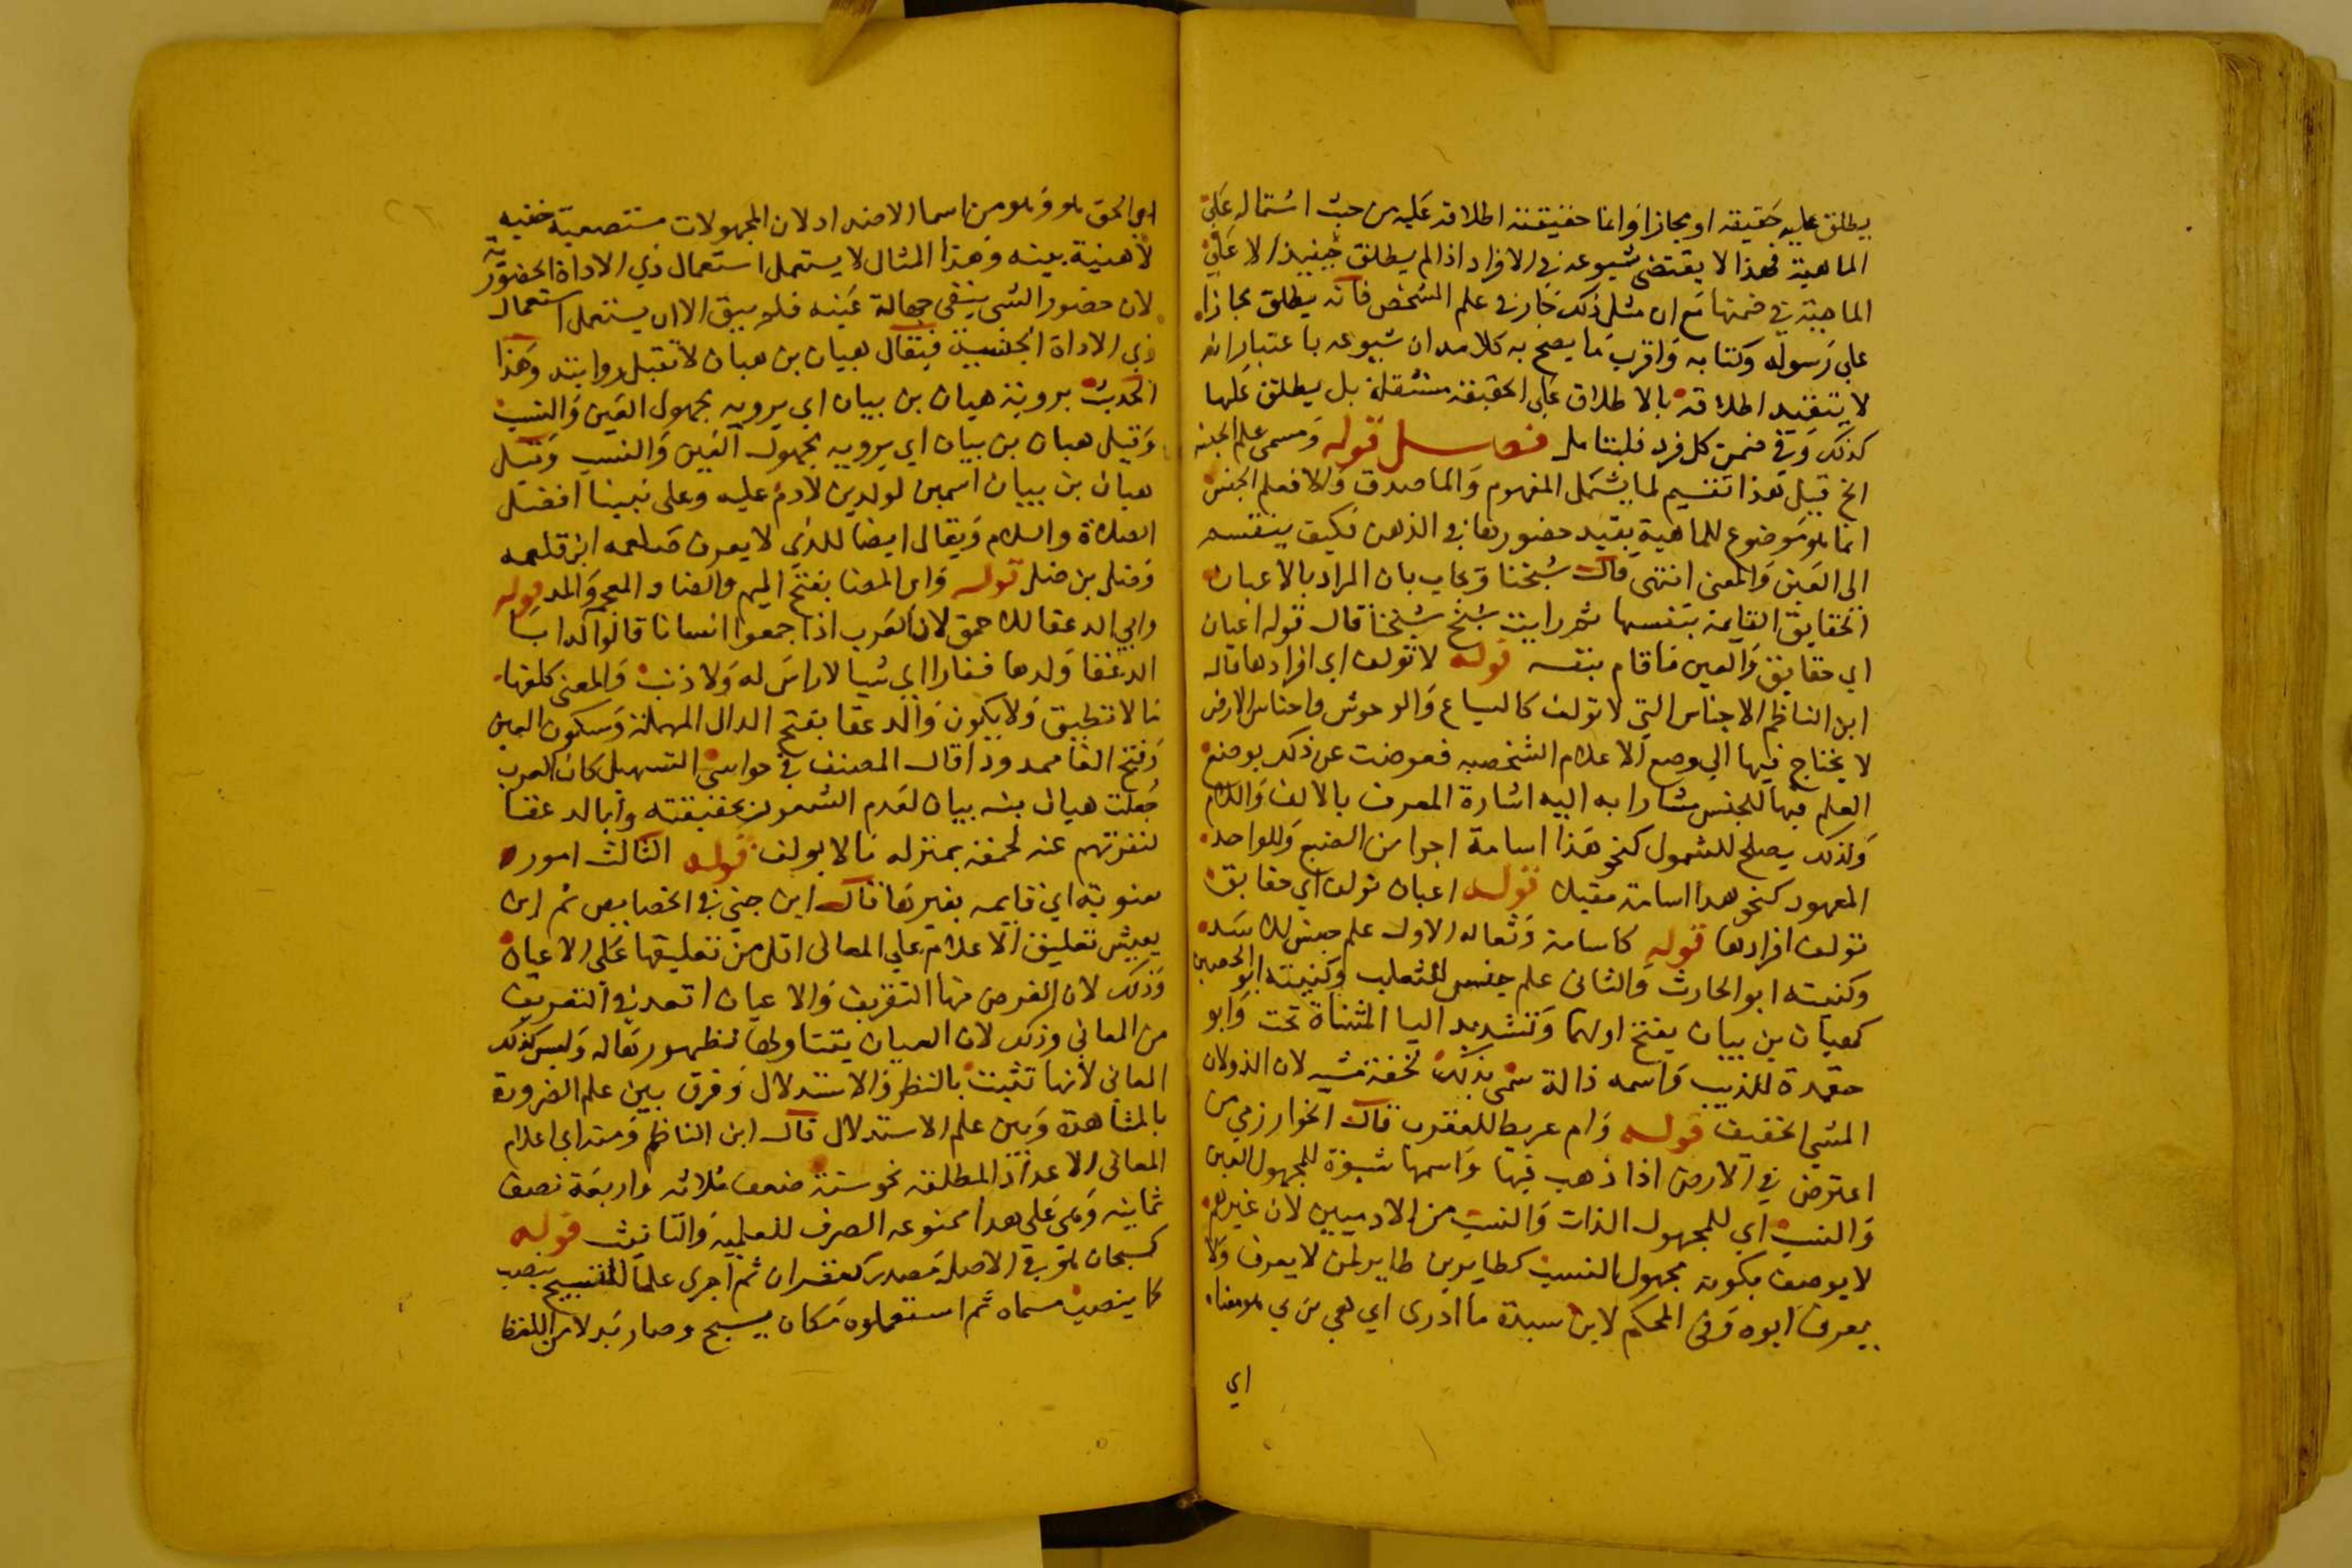 يطلق عليه حقيقة او مجازا وانما حقيقته اطلاقه عليه من حيث اشتماله علي
الماهية فهذا لا يقتضى شيوعه في الافراد اذ لم يطلق حينيذ الا علي
الماهية في ضمنها مع ان مثل ذلك جار في علم الشخص فانه يطلق مجازا
على رسوله وكتابه واقرب ما يصح به كلامه ان شيوعه باعتبار انه
لا يتقيد اطلاقه بالاطلاق على الحقيقة مستقلة بل يطلق عليها
كذلك وفي ضمن كل فرد فليتامل فصل قوله ومسمى علم الجنس
الخ قيل هذا تقسيم لما يشمل المفهوم والماصدق والا فعلم الجنس
انما هو موضوع للماهية بقيد حضورها في الذهن فكيف ينقسم
الى العين والمعنى انتهى قال شيخنا ويجاب بان المراد بالاعيان
الحقايق القايمة بنفسها ثم رايت شيخ شيخنا قال قوله اعيان
اي حقايق والعين ما قام بنفسه قوله لا تولف اي افرادها قاله
ابن الناظم الاجناس التي لا تولف كالسباع والوحوش واحناس الارض
لا يحتاج فيها الي وضع الاعلام الشخصيه فعوضت عن ذلك بوضع
العلم فيها للجنس مشارا به اليه اشارة المعرف بالالف واللام
ولذلك يصلح للشمول كنحو هذا اسامة اجرا من الضبع وللواحد
المعهود كنحو هذا اسامة مقبلا قوله اعيان تولف اي حقايق
تولف افرادها قوله كاسامة وثعاله الاول علم جنس للاسد
وكنيته ابو الحارث والثانى علم جنس للثعلب وكنيته ابو الحصين
كهيان بن بيان بفتح اولهما وتشديد اليا المثناة تحت وابو
جعدة للذيب واسمه ذالة سمى بذلك لخفة مشيه لان الذولان
المشي الخفيف قوله وام عريط للعقرب قال الخوارزمي من
اعترض في الارض اذا ذهب فيها واسمها شبوة للمجهول العين
والنسب اي للمجهول الذات والنسب من الادميين لان غيرهم
لا يوصف بكونه مجهول النسب كطاير بن طاير لمن لا يعرف ولا
يعرف ابوه وفي المحكم لابن سيدة ما ادرى اي هي من بي هو معناه
اي
اي الخق هو وهو من اسما الاضداد لان المجهولات مستصعبة خفيه
لا هنية بينه وهذا المثال لا يستعمل استعمال ذي الاداة الحضورية
لان حضور الشي ينفي جهالة عينه فلم يبق الا ان يستعمل استعمال
ذي الاداة الجنسية فيقال هيان بن هيان لا تقبل روايته وهذا
الحديث برويه هيان بن بيان اي يرويه مجهول العين والنسب
وقيل هيان بن بيان اي يرويه مجهول العين والنسب وقيل
هيان بن بيان اسمين لولدين لادم عليه وعلى نبينا افضل
الصلاة والسلام ويقال ايضا للذي لا يعرف صلعمه ابن قلعمه
وضل بن ضل قوله وابى المضا بفتح الميم والضاد المعجم والمد قوله
وابي الدغفا للاحمق لان العرب اذا حمقوا انسانا قالوا له ابا
الدغفا ولدها فقارا اي شيا لا راس له ولا ذنب والمعنى كلفها
ما لا تطيق ولا يكون والدغفا بفتح الدال المهملة وسكون الغين
وفتح الفا ممدودا قال المصنف في حواشى التسهيل كان العرب
جعلت هيان بن بيان لعدم الشعور بحقيقته وابا الدغفا
لنفرتهم عنه لحمقه بمنزله ما لا يولف قوله الثالث امور
معنوية اي قايمه بغيرها قال ابن جني في الخصايص ثم ابن
يعيش تعليق الاعلام علي المعانى اقل من تعليقها على الاعيان
وذلك لان الغرض منها التعريف والاعيان اقعد في التعريف
من المعاني وذلك لان العيان يتناولها لظهورها له وليس كذلك
المعاني لانها تثبت بالنظر والاستدلال وفرق بين علم الضرورة
بالمشاهدة وبين علم الاستدلال قال ابن الناظم ومنه اي اعلام
المعانى الاعداد المطلقه نحو ستة ضعف ثلاثه واربعة نصف
ثمانيه وهي على هذا ممنوعه الصرف للعلميه والتانيث قوله
كسبحان هو في الاصل مصدر كغفران ثم اجرى علما للتسبيح بنصب
كما ينصب مسماه ثم استعملوه مكان يسبح وصار بدلا من اللفظ